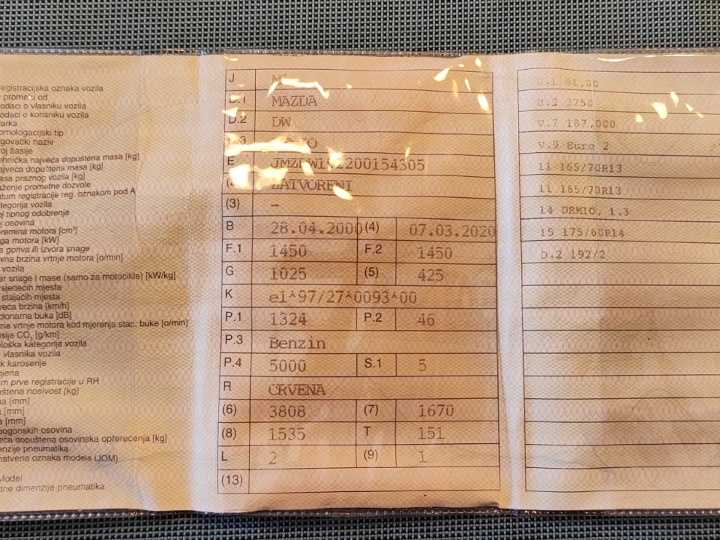 egistracijska oznaka vozila
prometu od
odaci o vlasniku vozila
odaci o korisniku vozila
arka
omologacijski tip
govački naziv
oj šasije
ehnička najveća dopuštena masa [kg]
ajveća dopuštena masa [kg]
asa praznog vozila [kg]
aženje prometne dozvole
atum registracije reg. oznakom pod A
ategorija vozila
oj tipnog odobrenja
oj osovina
premina motora [cm³]
ga motora [kW]
a goriva ili izvora snage
vna brzina vrtnje motora [o/min]
vozila
ar snage i mase (samo za motocikle) [kW/kg]
sjedećih mjesta
stajaćih mjesta
eća brzina [km/h]
cionarna buka [dB]
na vrtnje motora kod mjerenja stac. buke [o/min]
sija CO₂ [g/km]
ološka kategorija vozila
vlasnika vozila
k karoserije
njena
m prve registracije u RH
štena nosivost [kg]
a [mm]
[mm]
a [mm]
pogonskih osovina
eća dopuštena osovinska opterećenja [kg]
enzije pneumatika
nstvena oznaka modela (JOM)
Model
tne dimenzije pneumatika
J
D.1 MAZDA
D.2 DW
E
ZATVORENI
(3) –
B 28.04.2000 (4) 07.03.2020
F.1 1450 F.2 1450
G 1025 (5) 425
K e1*97/27*0093*00
P.1 1324 P.2 46
P.3 Benzin
P.4 5000 S.1 5
R CRVENA
(6) 3808 (7) 1670
(8) 1535 T 151
L 2 (9) 1
(13)
U.1 81,00
U.2 3750
V.7 187,000
V.9 Euro 2
11 165/70R13
11 165/70R13
14 DEMIO, 1.3
15 175/60R14